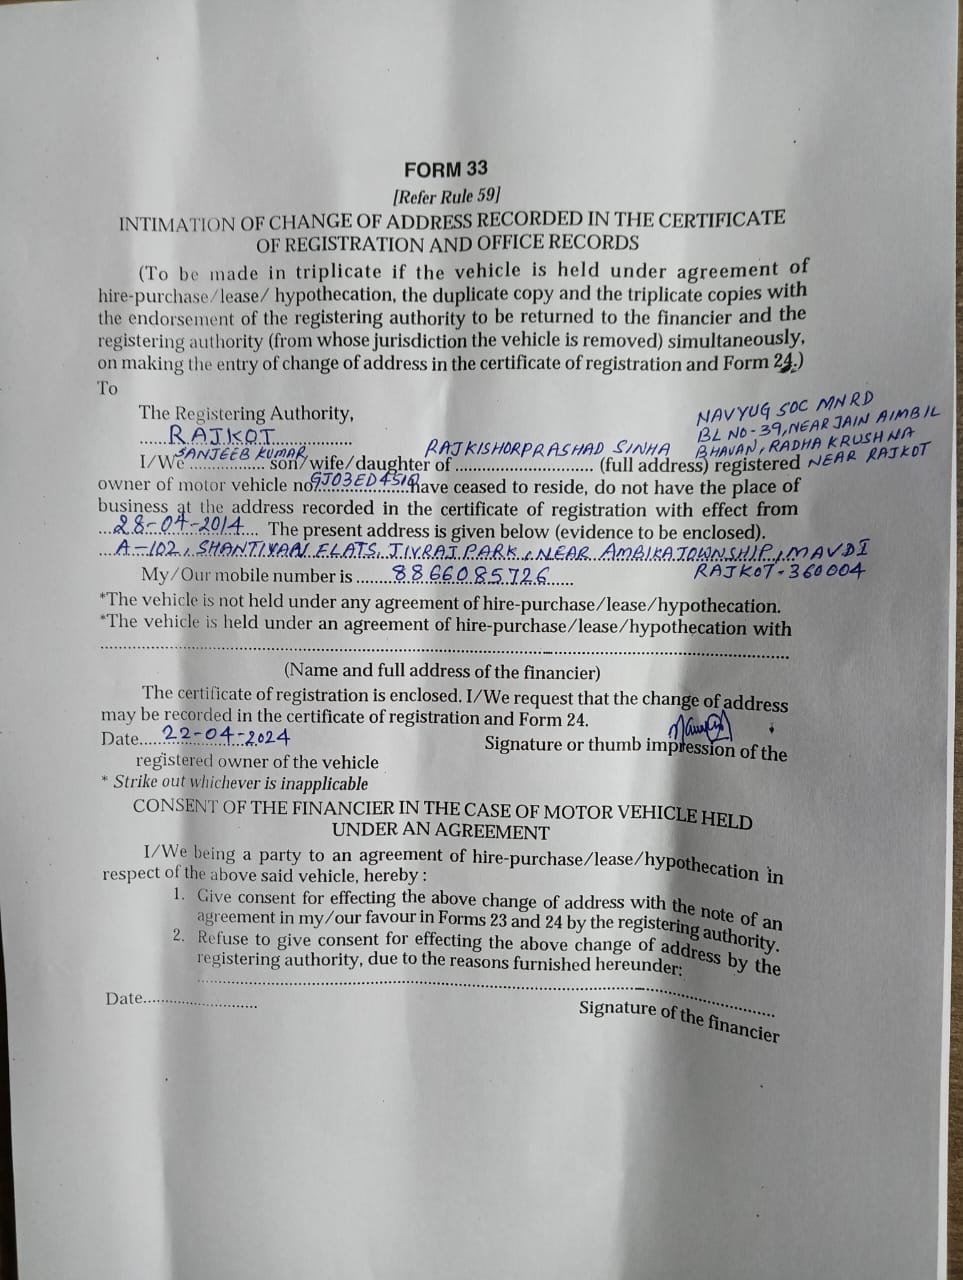 FORM 33
[Refer Rule 59]
INTIMATION OF CHANGE OF ADDRESS RECORDED IN THE CERTIFICATE
OF REGISTRATION AND OFFICE RECORDS
(To be made in triplicate if the vehicle is held under agreement of
hire-purchase/lease/ hypothecation, the duplicate copy and the triplicate copies with
the endorsement of the registering authority to be returned to the financier and the
registering authority (from whose jurisdiction the vehicle is removed) simultaneously,
on making the entry of change of address in the certificate of registration and Form 24.)
To
The Registering Authority,
NAVYUG SOC MNRD
......RAJKOT..................
BL NO-39, NEAR JAIN AIMBIL
SANJEEB KUMAR RAJKISHORPRASHAD SINHA BHAVAN, RADHA KRUSHNA
I/We .................. son/wife/daughter of ................................. (full address) registered NEAR RAJKOT
owner of motor vehicle no. GJ03ED4516 have ceased to reside, do not have the place of
business at the address recorded in the certificate of registration with effect from
...28-04-2014.... The present address is given below (evidence to be enclosed).
...A-102, SHANTIVAN FLATS, JIVRAJ PARK, NEAR AMBIKA TOWNSHIP, MAVDI
My/Our mobile number is ........8866085726...... RAJKOT-360004
*The vehicle is not held under any agreement of hire-purchase/lease/hypothecation.
*The vehicle is held under an agreement of hire-purchase/lease/hypothecation with
(Name and full address of the financier)
The certificate of registration is enclosed. I/We request that the change of address
may be recorded in the certificate of registration and Form 24.
Date.....22-04-2024 Signature or thumb impression of the
registered owner of the vehicle
* Strike out whichever is inapplicable
CONSENT OF THE FINANCIER IN THE CASE OF MOTOR VEHICLE HELD
UNDER AN AGREEMENT
I/We being a party to an agreement of hire-purchase/lease/hypothecation in
respect of the above said vehicle, hereby :
1. Give consent for effecting the above change of address with the note of an
agreement in my/our favour in Forms 23 and 24 by the registering authority.
2. Refuse to give consent for effecting the above change of address by the
registering authority, due to the reasons furnished hereunder:
Date........................... Signature of the financier